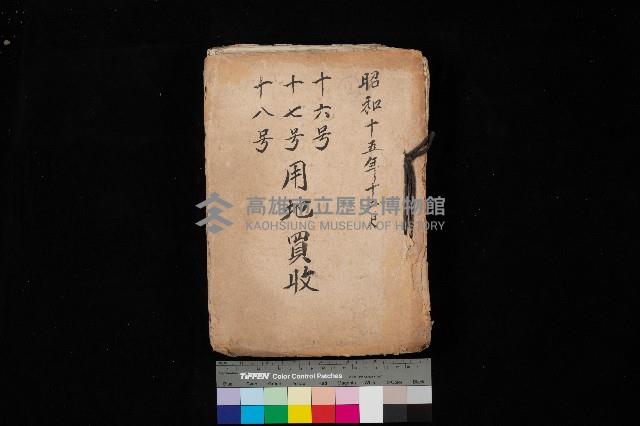 昭和十五年十一月
十六号
十七号
十八号
用地買収
高雄市立歷史博物館
KAOHSIUNG MUSEUM OF HISTORY
TIFFEN Color Control Patches
Blue Cyan Green Yellow Red Magenta White 3/Color Black